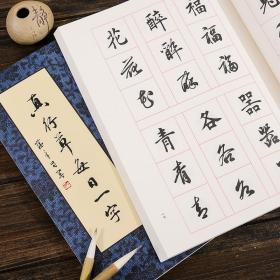 真行草每日一字
花
花
花
醉
醉
醉
福
福
福
青
青
青
各
各
各
器
器
器